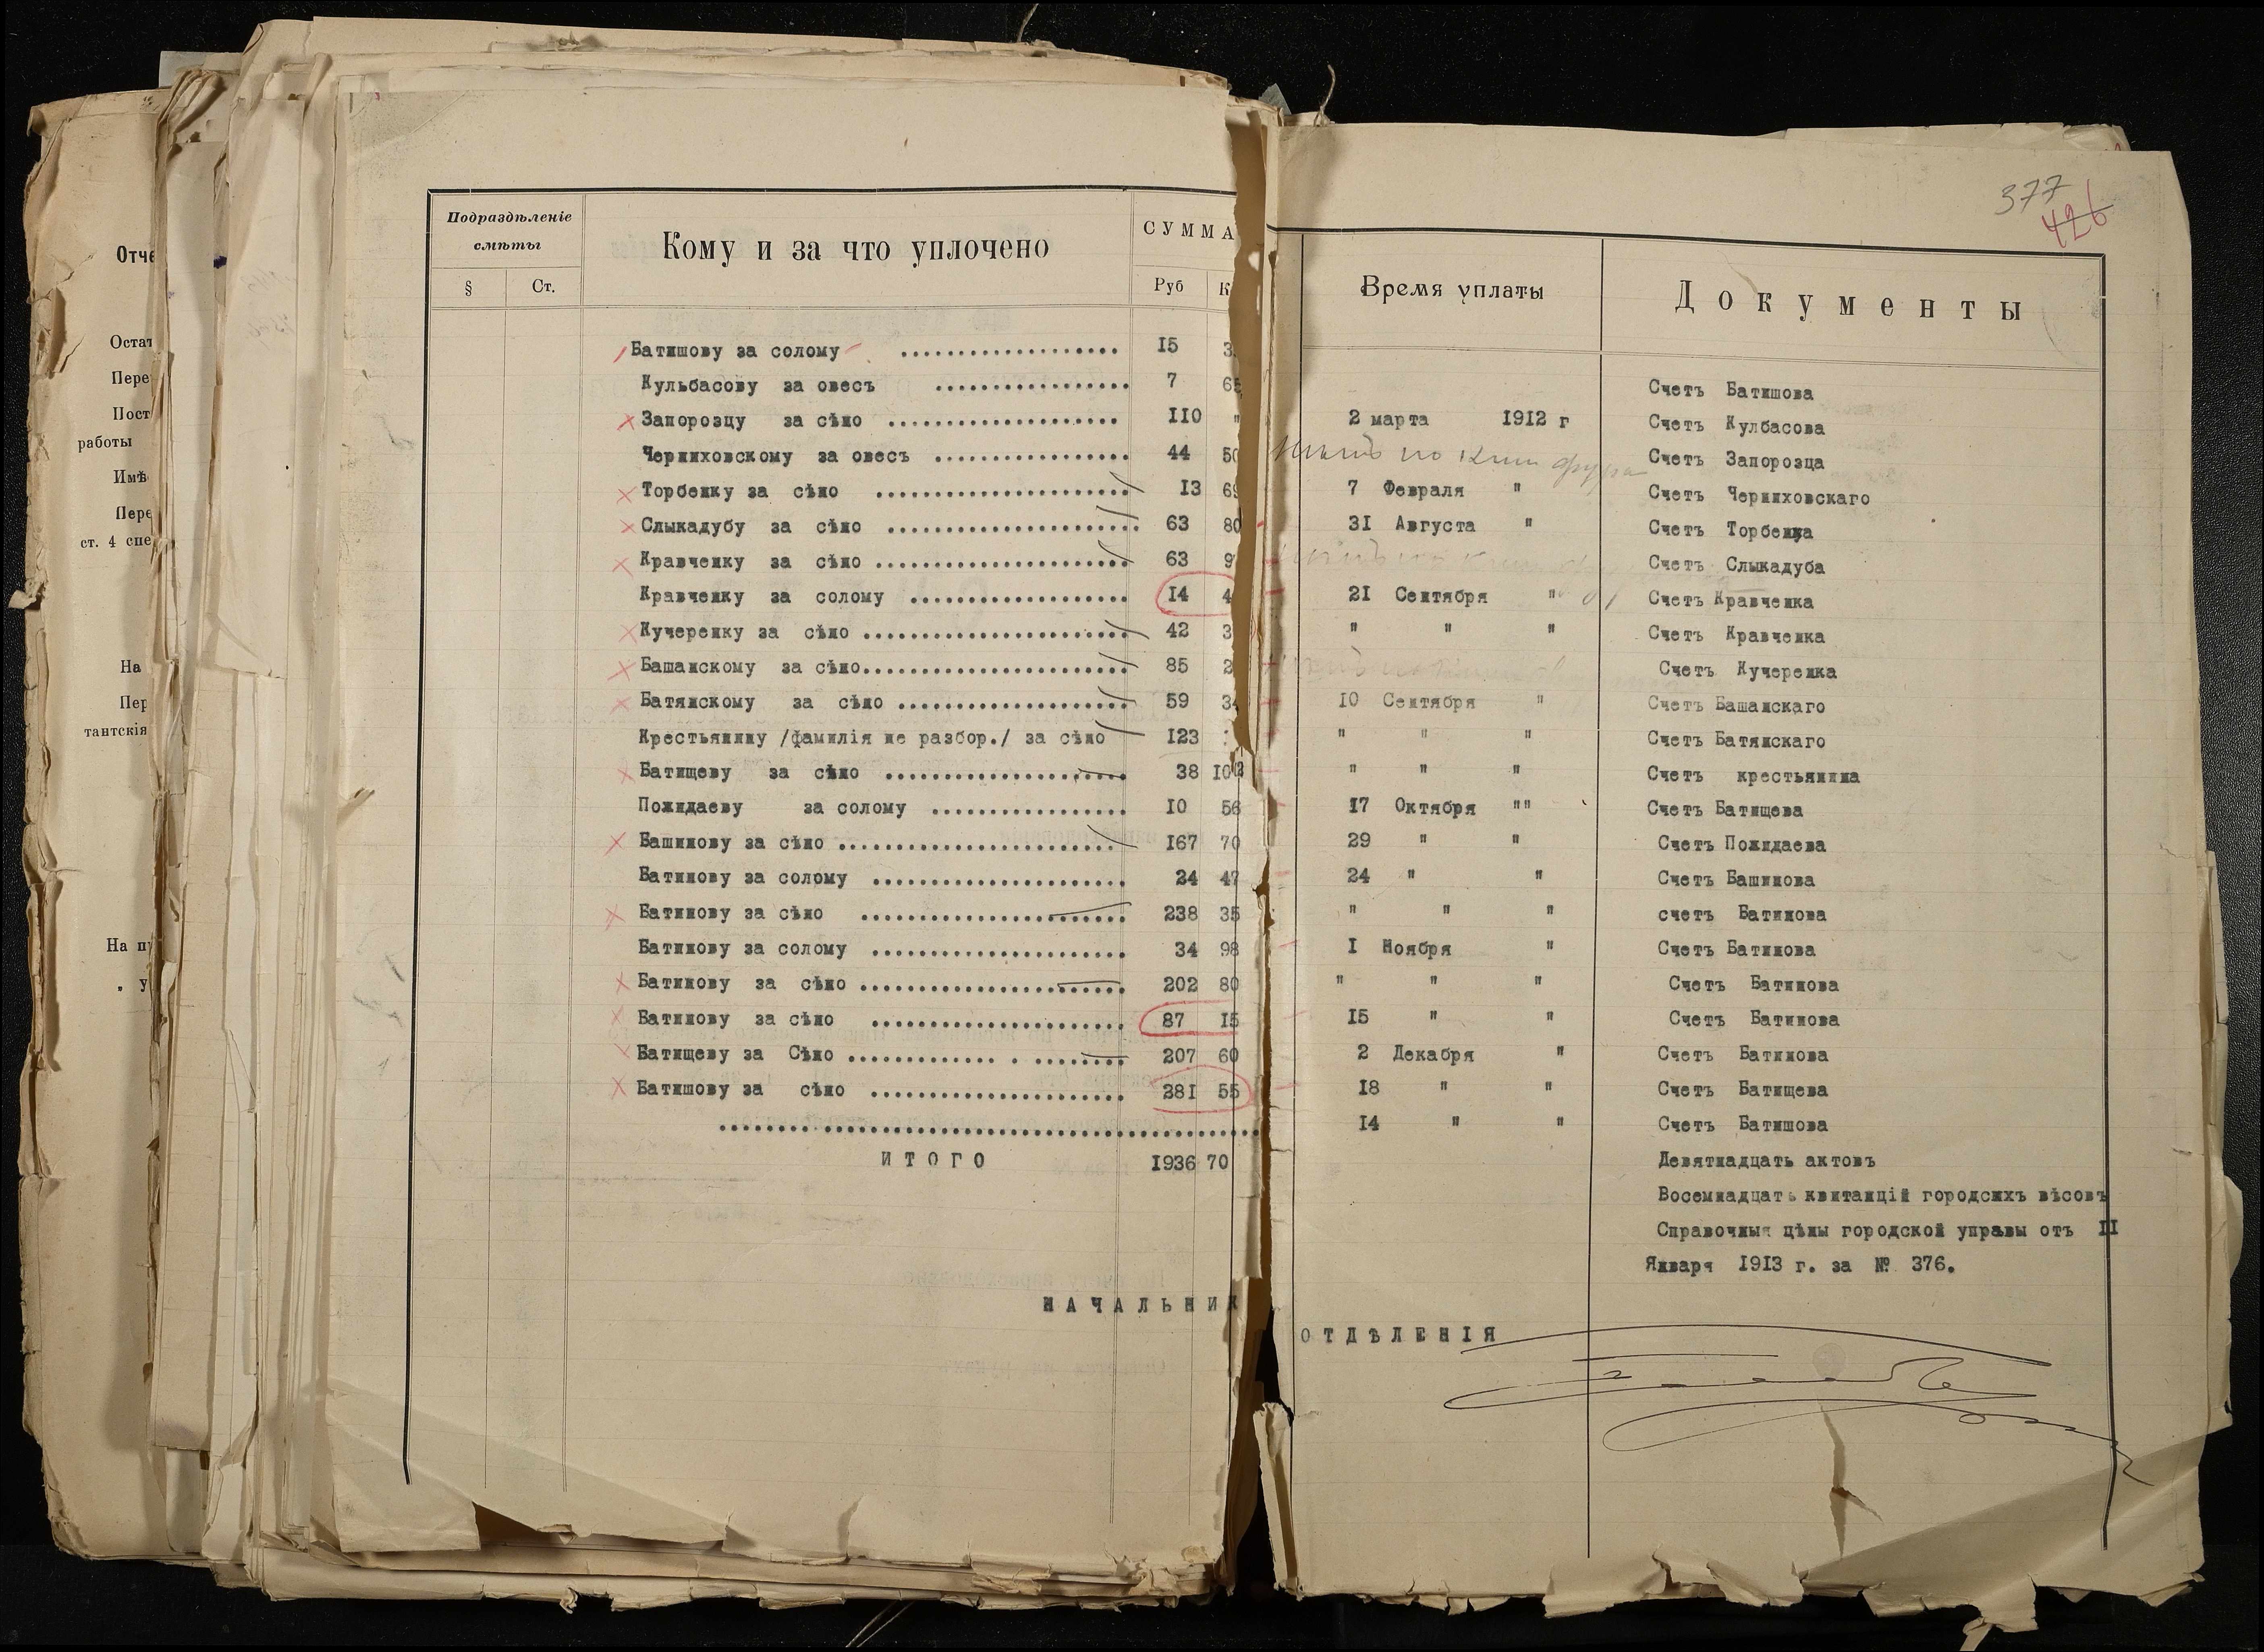 Отче
Остат
Пере
Пост
работы
Имѣ
Пере
ст. 4 спе
На
Пер
тантскія
На п
Подраздѣленіе
смѣты
§ Ст.
Кому и за что уплочено
СУММА
Руб К
Батишову за солому ................... 15 3
Кульбасову за овесъ ................. 7 65
Запорозцу за сѣно .................... 110 "
Черниховскому за овесъ ................. 44 50
Торбенку за сѣно ...................... 13 69
Слыкадубу за сѣно ...................... 63 80
Кравченку за сѣно ...................... 63 9
Кравченку за солому ................... 14 4
Кучеренку за сѣно ....................... 42 3
Башанскому за сѣно....................... 85 2
Батянскому за сѣно .................... 59 34
Крестьянину /фамилія не разбор./ за сѣно 123
Батищеву за сѣно ..................... 38 10
Пожидаеву за солому ................. 10 56
Башинову за сѣно ........................ 167 70
Батинову за солому ...................... 24 47
Батинову за сѣно ....................... 238 35
Батинову за солому ...................... 34 98
Батинову за сѣно ....................... 202 80
Батинову за сѣно ...................... 87 15
Батищеву за Сѣно ............. . ........ 207 60
Батишову за сѣно ...................... 281 55
ИТОГО 1936 70
НАЧАЛЬНИК
377
426
Время уплаты
Документы
Счетъ Батишова
2 марта 1912 г Счетъ Кулбасова
Счетъ Запорозца
7 Февраля " Счетъ Черниховскаго
31 Августа " Счетъ Торбенка
Счетъ Слыкадуба
21 Сентября " Счетъ Кравченка
" " " Счетъ Кравченка
Счетъ Кучеренка
10 Сентября " Счетъ Башанскаго
" " " Счетъ Батянскаго
" " " Счетъ крестьянина
17 Октября "" Счетъ Батищева
29 " " Счетъ Пожидаева
24 " " Счетъ Башинова
" " " счетъ Батинова
1 Ноября " Счетъ Батинова
" " " Счетъ Батинова
15 " " Счетъ Батинова
2 Декабря " Счетъ Батинова
18 " " Счетъ Батищева
14 " " Счетъ Батишова
Девятнадцать актовъ
Восемнадцать квитанцій городсихъ вѣсовъ
Справочныя цѣны городской управы отъ 11
Января 1913 г. за № 376.
ОТДѢЛЕНІЯ